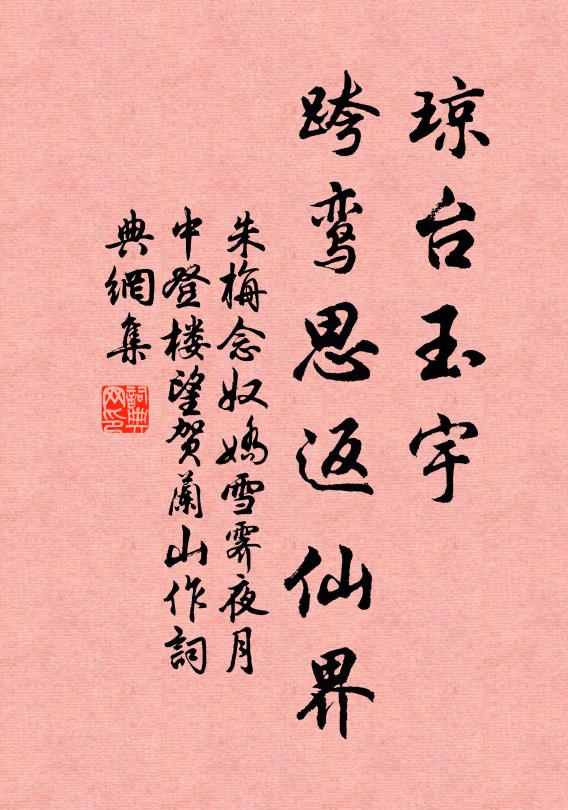 琼台玉宇
跨鸾思返仙界
朱梅念奴娇雪霁夜月
中登楼望贺兰山作詞
典網集
詞典
网印